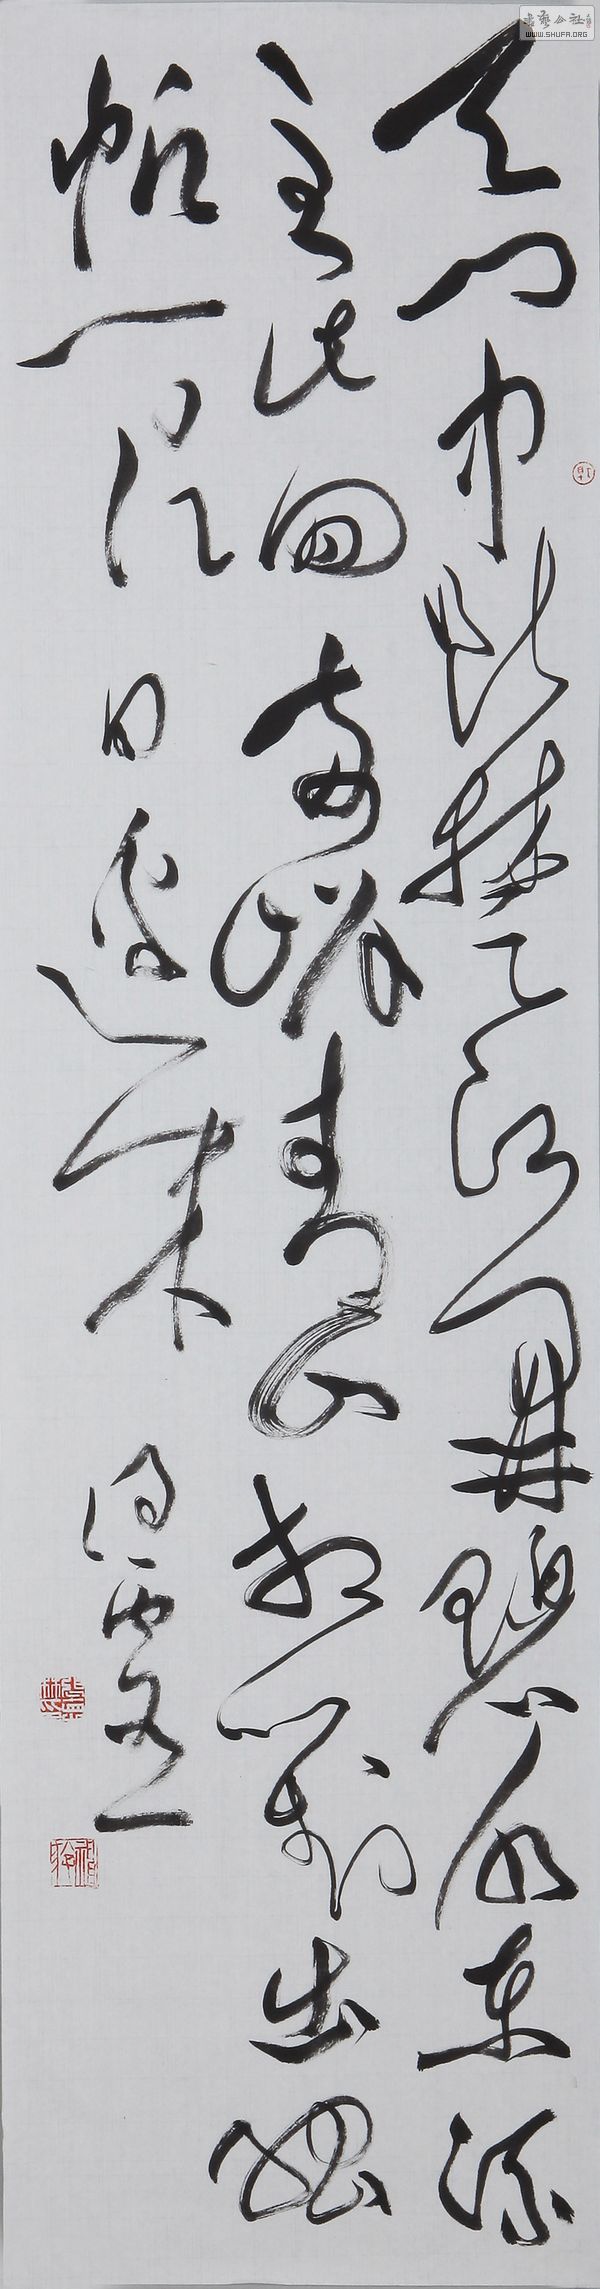 書藝公社
WWW.SHUFA.ORG
天门中断楚江開碧水東流
至此回两岸青山相对出孤
帆一片日边来